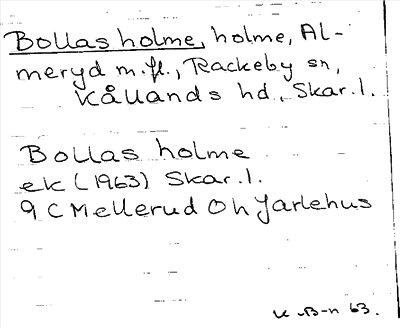 Bollas holme, holme, Al-
meryd m.fl., Rackeby sn,
Kållands hd, Skar.l.
Bollas holme
ek (1963) Skar.l.
9C Mellerud Oh Jarlehus
63.